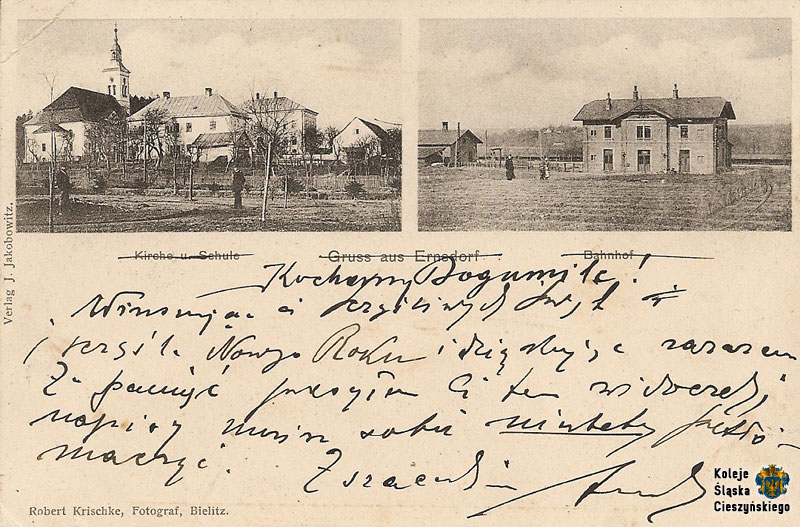 Kirche u. Schule
Gruss aus Ernsdorf
Bahnhof
Verlag J. Jakobowitz.
Kochany Bogumile!
Winszując ci szczęśliwych Świąt
i Nowego Roku i dziękując zarazem
Za pamięć Ci ten widoczek,
napisy musisz sobie
maczyć.
Robert Krischke, Fotograf, Bielitz.
Koleje
Śląska
Cieszyńskiego